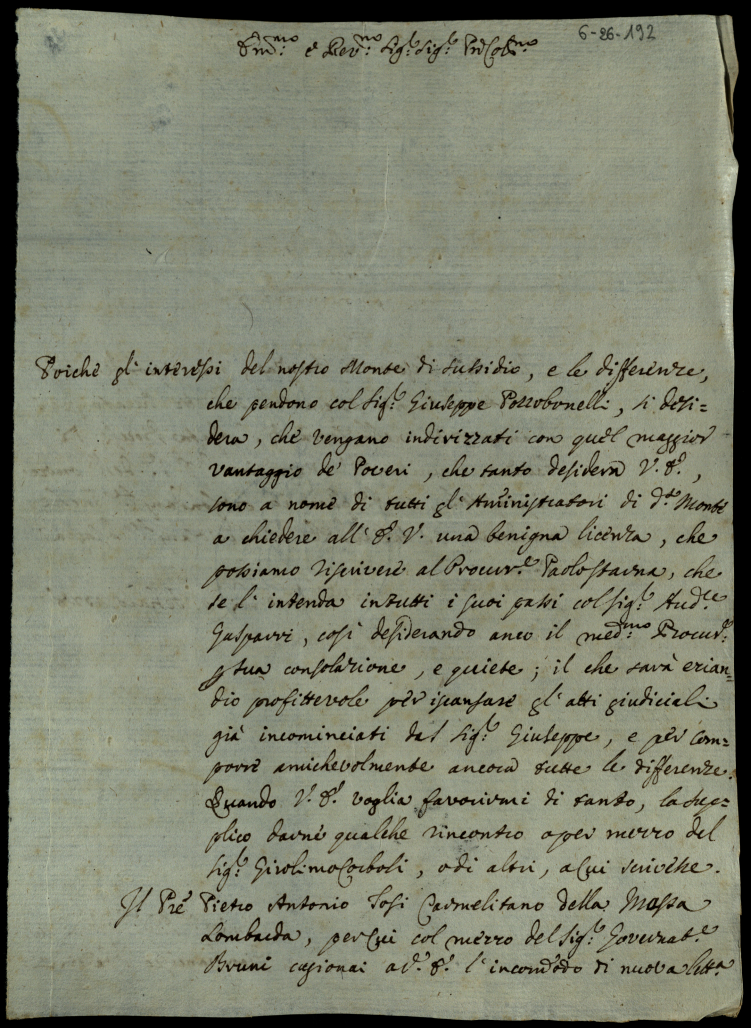 6-26-192
Em.mo e Rev.mo Sig.r Sig.r Pñe Col.mo
Poiche gl' interessi del nostro Monte di sussidio, e le differenze,
che pendono col Sig.r Giuseppe Pozzobonelli, si desi=
dera, che vengano indirizzati con quel maggior
vantaggio de' Poveri, che tanto desidera V. E.,
sono a nome di tutti gl' Amministratori di d.to Monte
a chiedere all' E. V. una benigna licenza, che
possiamo riscrivere al Procur.e Paolo, che
se l' intenda in tutti i suoi passi col Sig.r Aud.re
Gasparri, così desiderando anco il med.mo Procur.e
p sua consolazione, e quiete; il che sarà ezian=
dio profittevole per iscansare gl' atti giudiciali
già incominciati dal Sig.r Giuseppe, e per com=
porre amichevolmente ancora tutte le differenze.
Quando V. E. voglia favorirmi di tanto, la sup=
plico darne qualche rincontro o per mezzo del
Sig.r Girolimo, o di altri, a Cui scrivesse.
Il Pre Pietro Antonio Tosi Carmelitano della Massa
Lombarda, per Cui col mezzo del Sig.r Governat.e
Bruni cagionai a V. E. l' incomodo di nuova lett.a